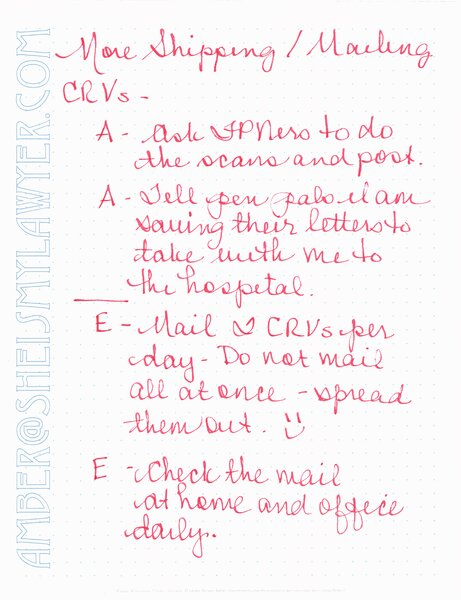 More Shipping / Mailing
CRVs -
A - Ask FPNers to do
the scans and post.
A - Tell pen pals I am
saving their letters to
take with me to
the hospital.
E - Mail 2 CRVs per
day - Do not mail
all at once - spread
them out. :)
E - Check the mail
at home and office
daily.
AMBER@SHEISMYLAWYER.COM